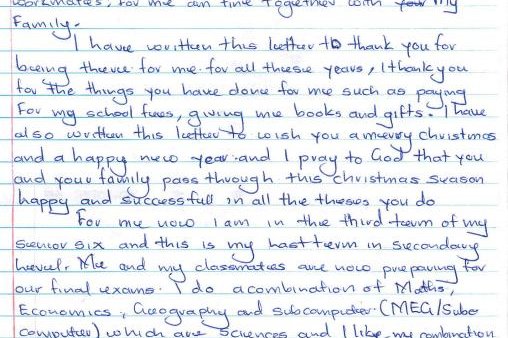 workmates, for me am fine together with my
Family.
I have written this letter to thank you for
being there for me for all these years, I thank you
for the things you have done for me such as paying
For my school fees, giving me books and gifts. I have
also written this letter to wish you a merry christmas
and a happy new year and I pray to God that you
and your family pass through this christmas season
happy and successfull in all the theses you do
For me now I am in the third term of my
Senior six and this is my last term in secondary
level. Me and my classmates are now preparing for
our final exams. I do a combination of Maths,
Economics, Geography and subcomputer. (MEG/Sub
computer) which are Sciences and I like my combination